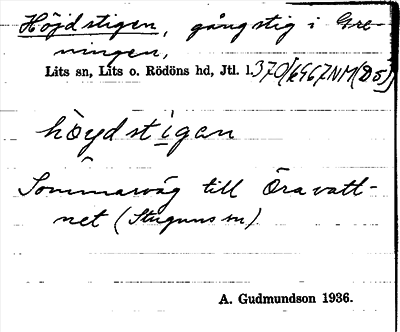 Höjdstigen, gångstig i Gre-
ningen,
Lits sn, Lits o. Rödöns hd, Jtl. l. 370/
höydstigan
Sommarväg till Öravatt-
net (Stuguns sn).
A. Gudmundson 1936.